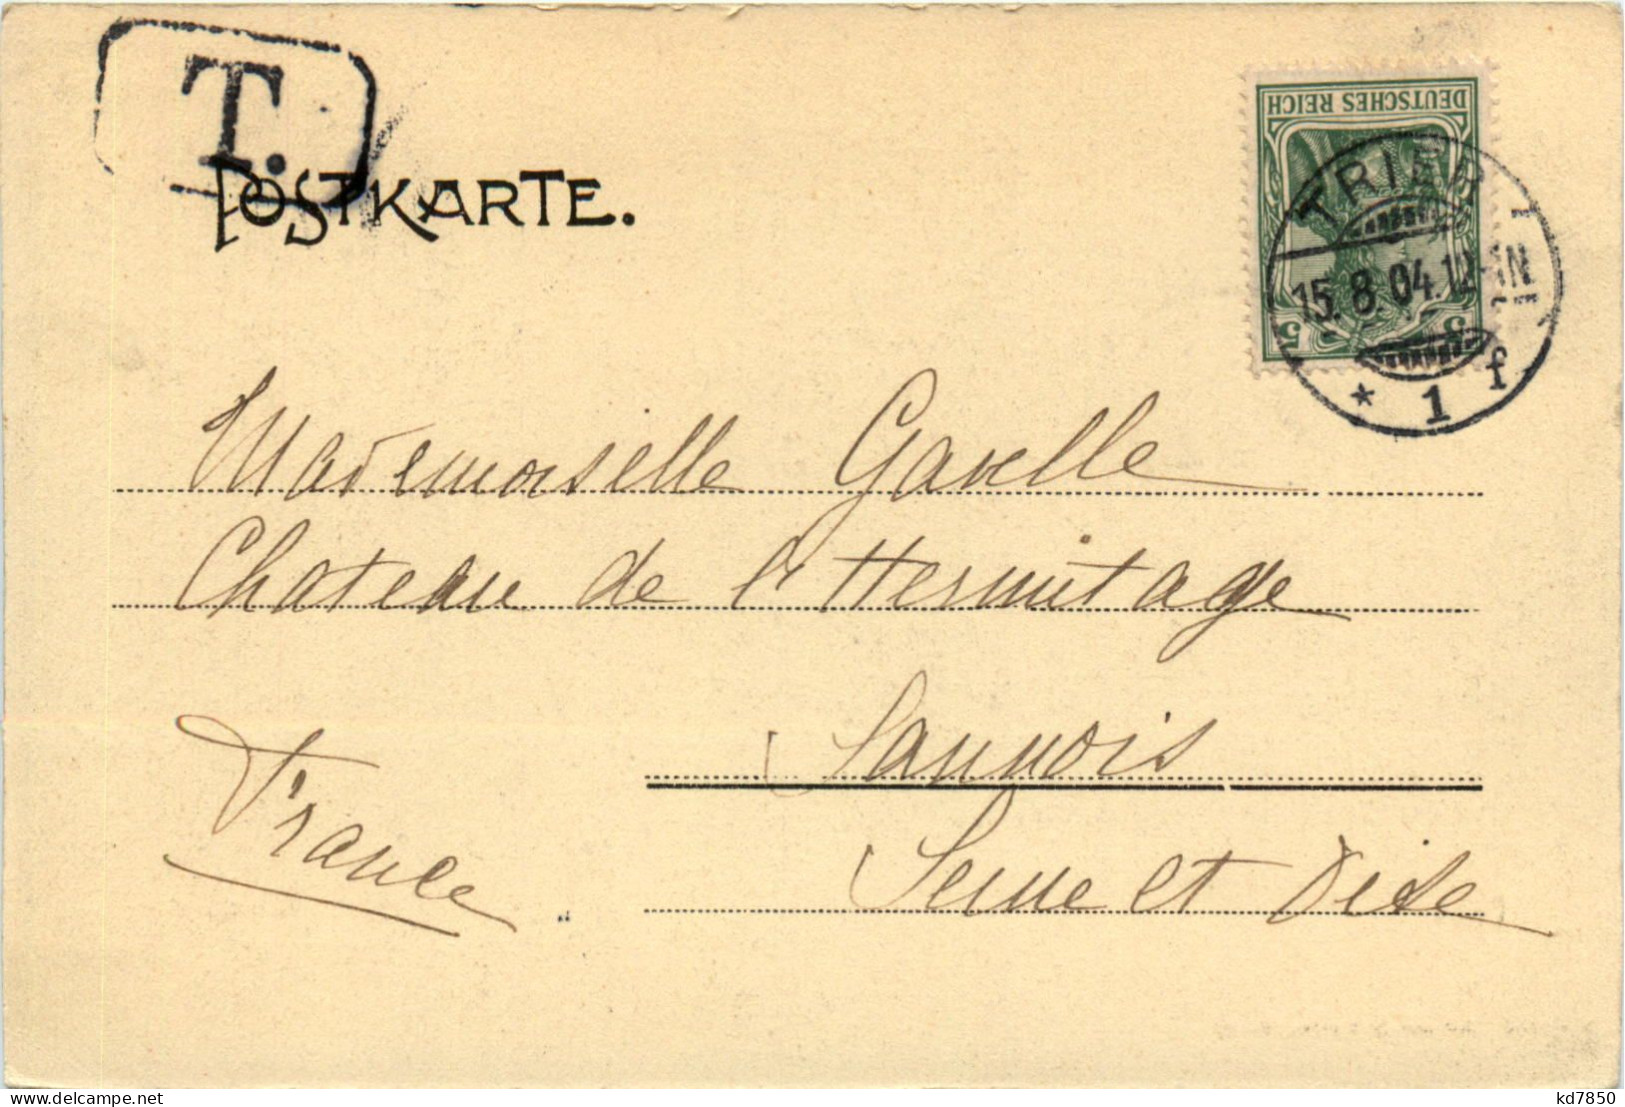 T.
POSTKARTE.
DEUTSCHES REICH
5 5
TRIER
15.8.04.12-1N
* 1 f
Mademoiselle Gavelle
Chateau de l'Hermitage
Sannois
France
Seine et Oise
delcampe.net
kd7850